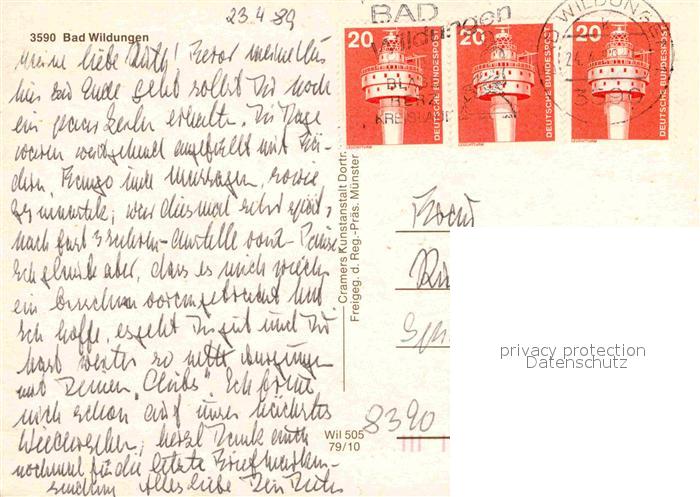 23.4.89
3590 Bad Wildungen
Meine liebe Ruth! Bevor meine
hier zu Ende geht sollst Du noch
ein paar Zeilen erhalten. Die Tage
waren wieder mal angefüllt mit Bä-
dern, Fango und Massagen, sowie
Gymnastik; war diesmal sehr
nach fast
Ich glaube aber, dass es mich wieder
ein bisschen vorangebracht hat
Ich hoffe, es geht Dir gut und Du
hast weiter so nette
mit Deinen "Clubs". Ich freue
mich schon auf unser nächstes
Wiedersehen; herzl. Dank auch
nochmal für die letzte Briefmarken-
sendung Alles liebe Dein
BAD
Wildungen
KREISSTADT
BAD WILDUNGEN
24.4
3590
20
DEUTSCHE BUNDESPOST
LEUCHTTURM
20
DEUTSCHE BUNDESPOST
LEUCHTTURM
20
DEUTSCHE BUNDESPOST
LEUCHTTURM
Cramers Kunstanstalt Dortm.
Freigeg. d. Reg.-Präs. Münster
Frau
8390
Wil 505
79/10
privacy protection
Datenschutz